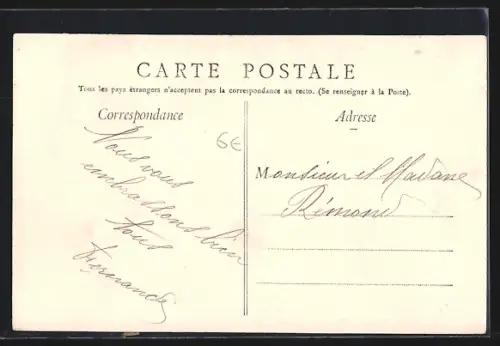 CARTE POSTALE
Tous les pays étrangers n'acceptent pas la correspondance au recto. (Se renseigner à la Poste).
Correspondance
Adresse
6€
Nous vous
embrassons bien
tous
Fernande
Monsieur et Madame
Rémond